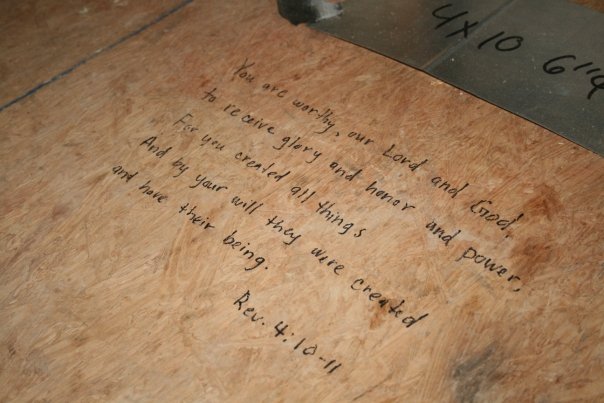 4x10 6"4
You are worthy, our Lord and God,
to receive glory and honor and power,
For you created all things
And by your will they were created
and have their being.
Rev. 4:10-11